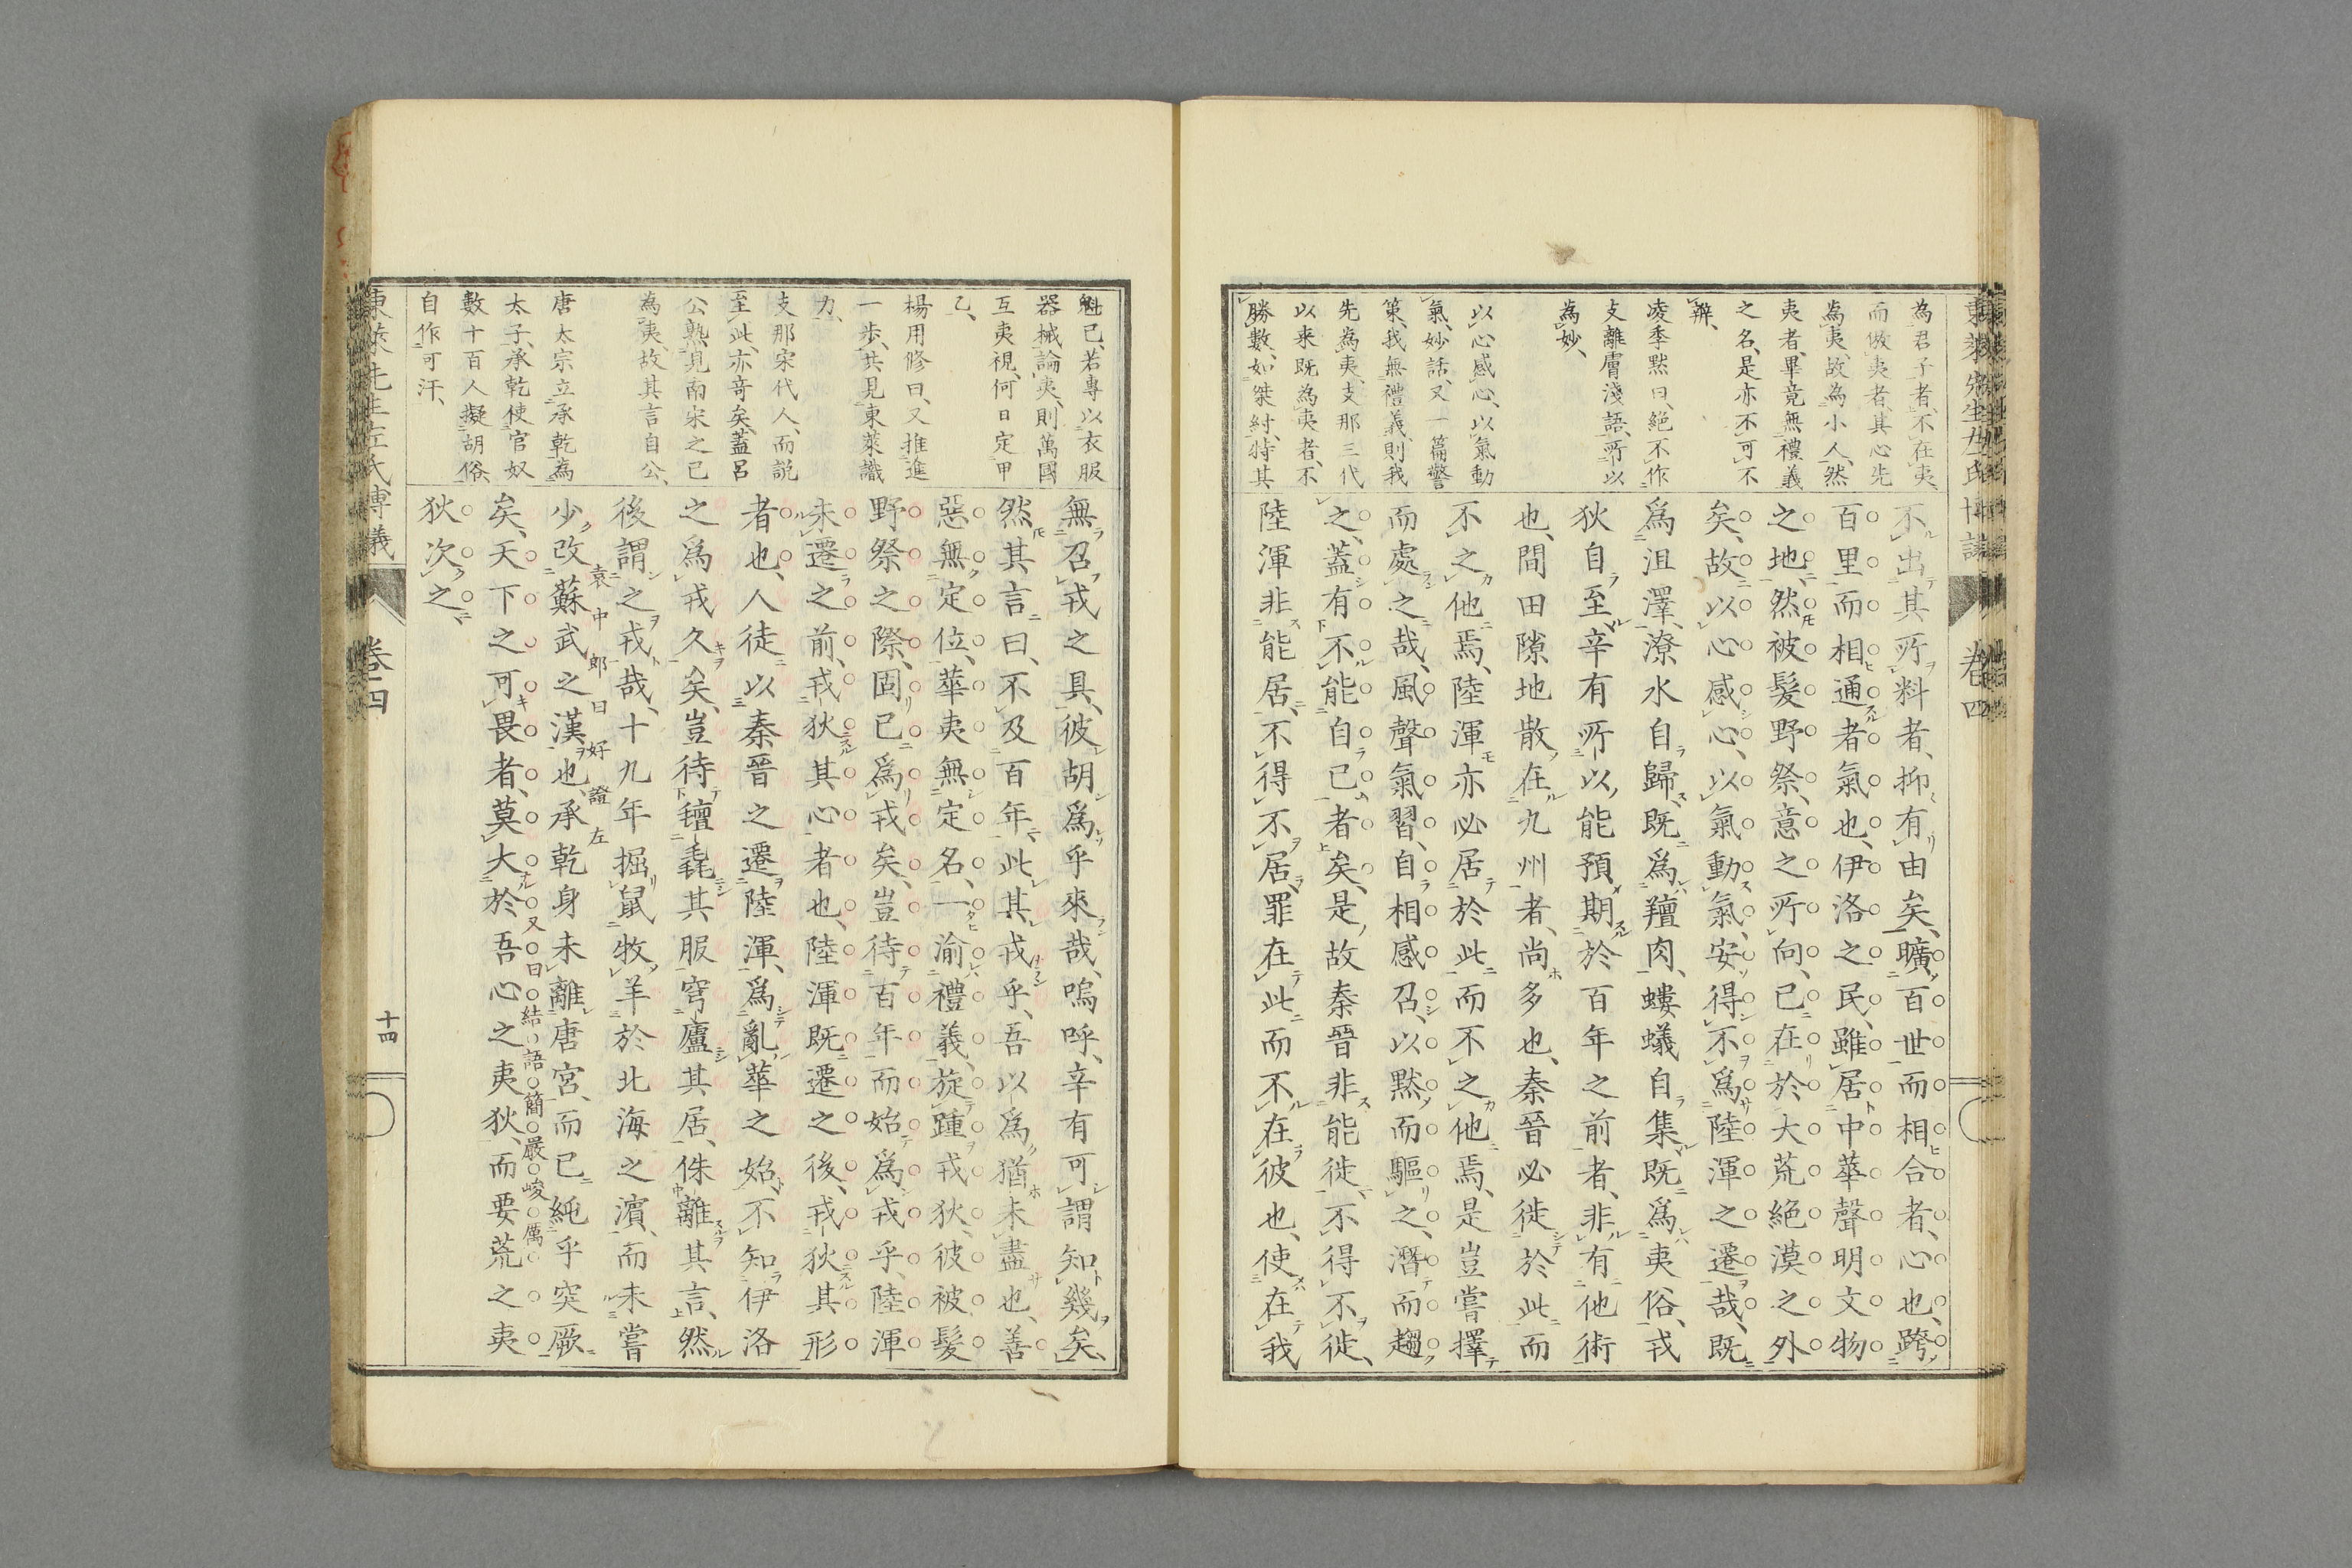 東萊先生左氏博議
卷四
為君子者、不在夷、
而倣夷者、其心先
為夷、故為小人、然
夷者、畢竟無禮義
之名、是亦不可不
辨、
凌季默曰、絕不作
支離膚淺語、所以
為妙、
以心感心、以氣動
氣、妙話、又一篇警
策、我無禮義、則我
先為夷、支那三代
以来既為夷者、不
勝數、如桀紂、特其
不出其所料者、抑有由矣、曠百世而相合者、心也、跨
百里而相通者氣也、伊洛之民、雖居中華聲明文物
之地、然被髮野祭、意之所向、已在於大荒絕漠之外
矣、故以心感心、以氣動氣、安得不爲陸渾之遷哉、既
爲沮澤、潦水自歸、既爲羶肉、螻蟻自集、既爲夷俗、戎
狄自至、辛有所以能預期於百年之前者、非有他術
也、間田隙地散在九州者、尚多也、秦晉必徙於此而
不之他焉、陸渾亦必居於此而不之他焉、是豈嘗擇
而處之哉、風聲氣習、自相感召、以默而驅之、潛而趨
之、蓋有不能自已者矣、是故秦晉非能徙、不得不徙、
陸渾非能居、不得不居、罪在此而不在彼也、使在我
魁已、若專以衣服
器械論夷、則萬國
互夷視、何日定甲
乙、
楊用修曰、又推進
一步、共見東萊識
力、
支那宋代人、而説
至此、亦奇矣、蓋呂
公熟見南宋之已
為夷、故其言自公、
唐太宗立承乾為
太子、承乾使官奴
數十百人擬胡俗
自作可汗、
無召戎之具、彼胡爲乎來哉、嗚呼、辛有可謂知幾矣、
然其言曰、不及百年、此其戎乎、吾以爲猶未盡也、善
惡無定位、華夷無定名、一渝禮義、旋踵戎狄、彼被髮
野祭之際、固已爲戎矣、豈待百年而始爲戎乎、陸渾
未遷之前、戎狄其心者也、陸渾既遷之後、戎狄其形
者也、人徒以秦晉之遷陸渾、爲亂華之始、不知伊洛
之爲戎久矣、豈待氊毳其服穹廬其居、侏離其言、然
後謂之戎哉、十九年掘鼠牧羊於北海之濱、而未嘗
少改蘇武之漢也、承乾身未離唐宮、而已純乎突厥
袁中郎曰好證左
矣、天下之可畏者、莫大於吾心之夷狄、而要荒之夷
又曰結語簡嚴峻厲
狄次之
東萊先生左氏博議
卷四
十四